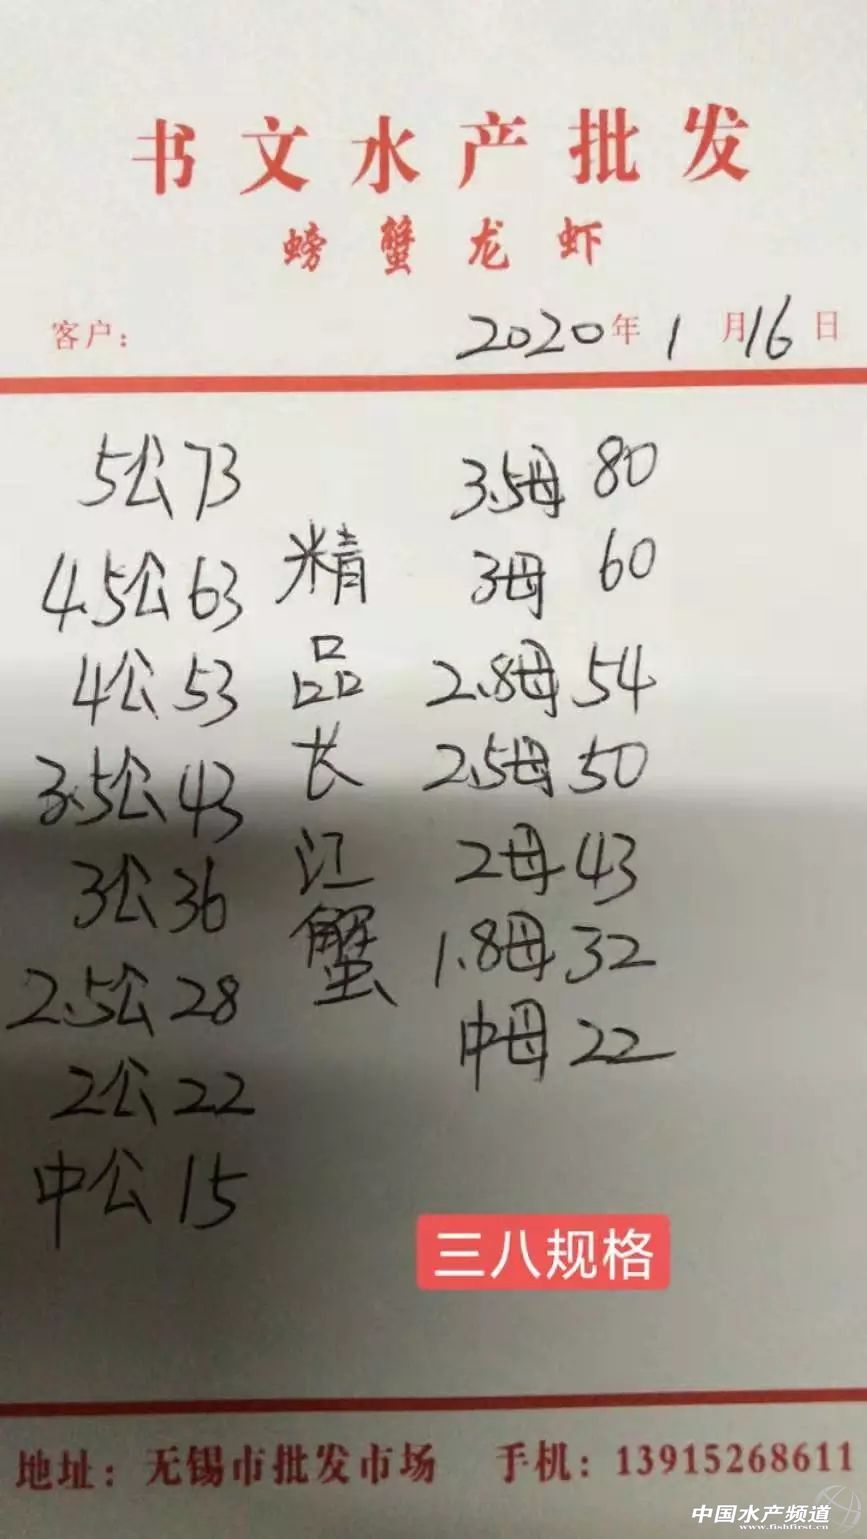 书文水产批发
螃蟹龙虾
客户： 2020年1月16日
5公73
4.5公63
4公53
3.5公43
3公36
2.5公28
2公22
中公15
精品长江蟹
3.5母80
3母60
2.8母54
2.5母50
2母43
1.8母32
中母22
三八规格
地址：无锡市批发市场 手机：13915268611
中国水产频道
www.fishfirst.cn